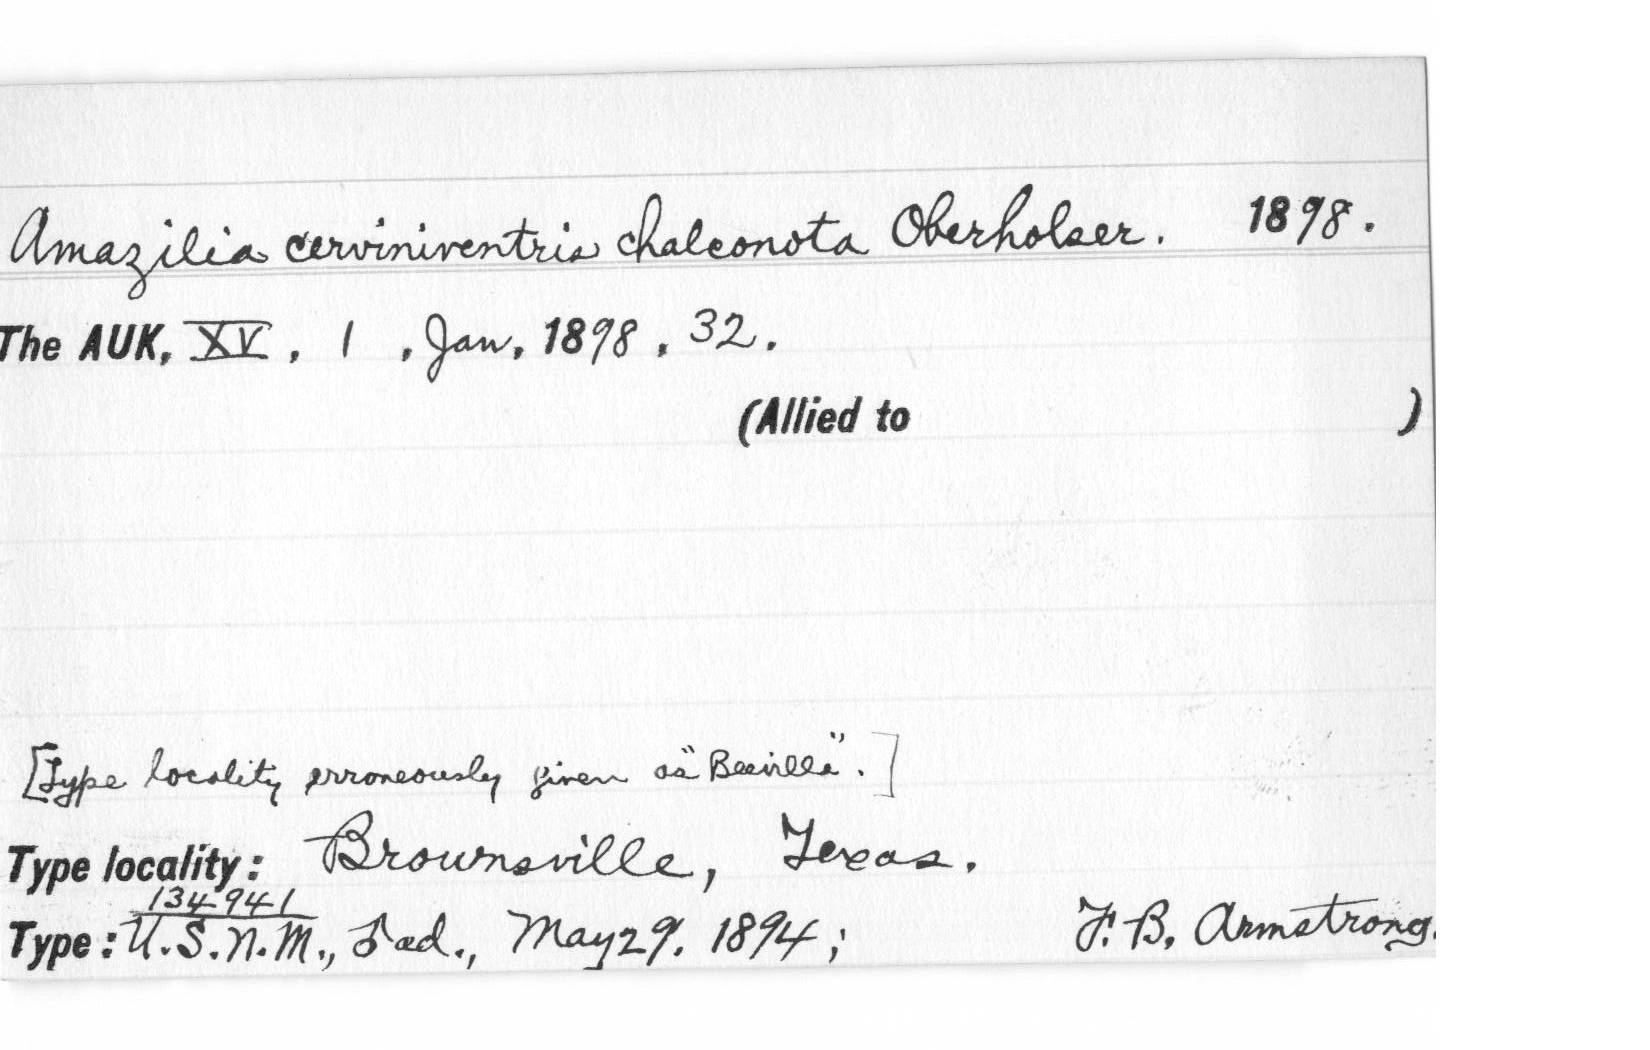 Amazilia cerviniventris chalconota Oberholser. 1898.
The AUK, XV, 1, Jan, 1898, 32.
(Allied to )
[Type locality erroneously given as "Beeville".]
Type locality: Brownsville, Texas.
134941
Type: U.S.N.M., ad., May 29, 1894; F. B. Armstrong.